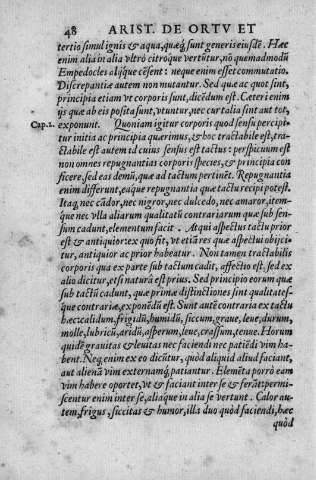 48 ARIST. DE ORTV ET
tertio simul ignis & aqua, quæq́; sunt generis eiusdē. Hæc
enim alia in alia vltró citroque vertūtur, nō quemadmodū
Empedocles alijque cēsent: neque enim esset commutatio.
Discrepantiæ autem non mutantur. Sed quæ ac quot sint,
principia etiam vt corporis sunt, dicēdum est. Cæteri enim
ijs quæ ab eis posita sunt, vtuntur, nec cur talia sint aut tot,
Cap.2. exponunt. Quoniam igitur corporis quod sensu percipi-
tur initia ac principia quærimus, & hoc tractabile est, tra-
ctabile est autem id cuius sensus est tactus: perspicuum est
non omnes repugnantias corporis species, & principia con
ficere, sed eas demū, quæ ad tactum pertinēt. Repugnantia
enim differunt, eaque repugnantia quæ tactu recipi potest.
Itaq; nec cādor, nec nigror, nec dulcedo, nec amaror, item-
que nec vlla aliarum qualitatū contrariarum quæ sub sen-
sum cadunt, elementum facit. Atqui aspectus tactu prior
est & antiquior: ex quo fit, vt etiā res quæ aspectui obijci-
tur, antiquior ac prior habeatur. Non tamen tractabilis
corporis qua ex parte sub tactum cadit, affectio est, sed ex
alio dicitur, etsi natura est prius. Sed principio eorum quæ
sub tactū cadunt, quæ primæ distinctiones sint qualitates-
que contrariæ, exponēdū est. Sunt autē contraria ex tactu
hæc: calidum, frigidū, humidū, siccum, graue, leue, durum,
molle, lubricū, aridū, asperum, leue, crassum, tenue. Horum
quidē grauitas & leuitas nec faciendi nec patiēdi vim ha-
bent. Neq; enim ex eo dicūtur, quòd aliquid aliud faciant,
aut alienā vim externamq́; patiantur. Elemēta porrò eam
vim habere oportet, vt & faciant inter se & ferāt: permi-
scentur enim inter se, aliaque in alia se vertunt. Calor au-
tem, frigus, siccitas & humor, illa duo quòd faciendi, hæc
quòd